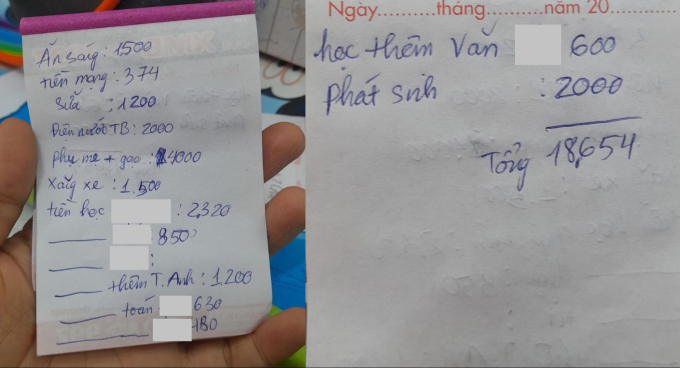 Ăn sáng : 1500
tiền mạng : 374
Sữa : 1200
Điện nước TB : 2000
Phụ mẹ + gạo : 4000
Xăng xe : 1.500
tiền học : 2,320
850
:
thêm T. Anh : 1.200
toán 630
480
Ngày..........tháng..........năm 20............
học thêm Văn 600
Phát sinh : 2000
Tổng 18,654